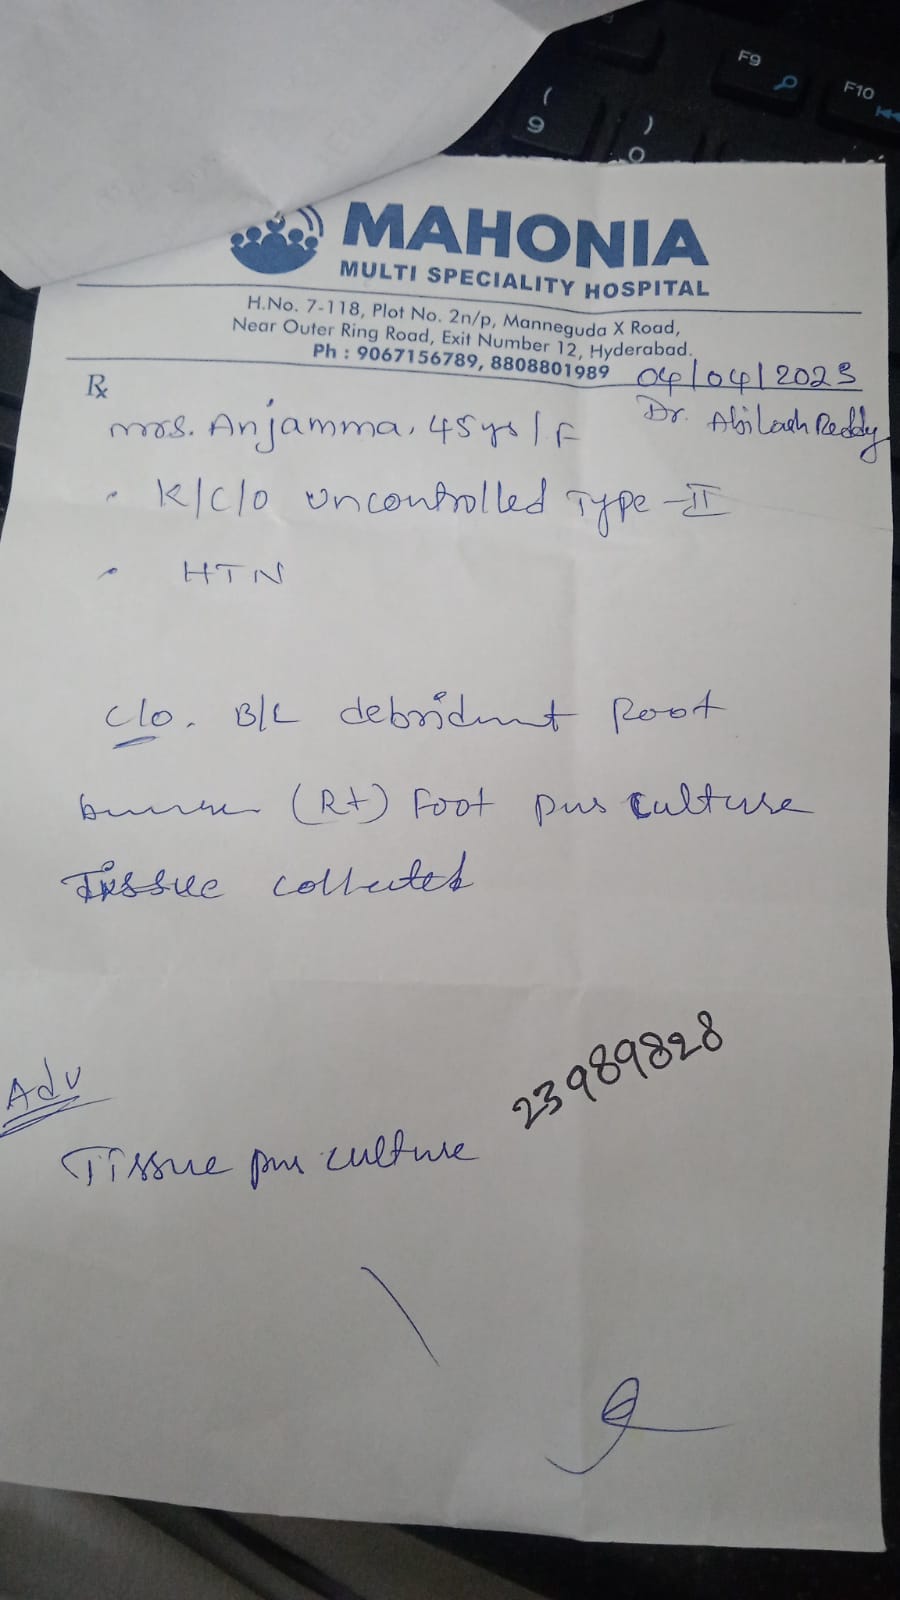 MAHONIA
MULTI SPECIALITY HOSPITAL
H.No. 7-118, Plot No. 2n/p, Manneguda X Road,
Near Outer Ring Road, Exit Number 12, Hyderabad.
Ph : 9067156789, 8808801989
04/04/2023
Dr. Abilash Reddy
Rx
Mrs. Anjamma, 45ys/F
• K/C/O uncontrolled Type-II
• HTN
C/o. B/L debridmnt Foot
(Rt) Foot pus culture
Tissue collected
23989828
Adv
Tissue pus culture
F9
F10
(
9
)
0